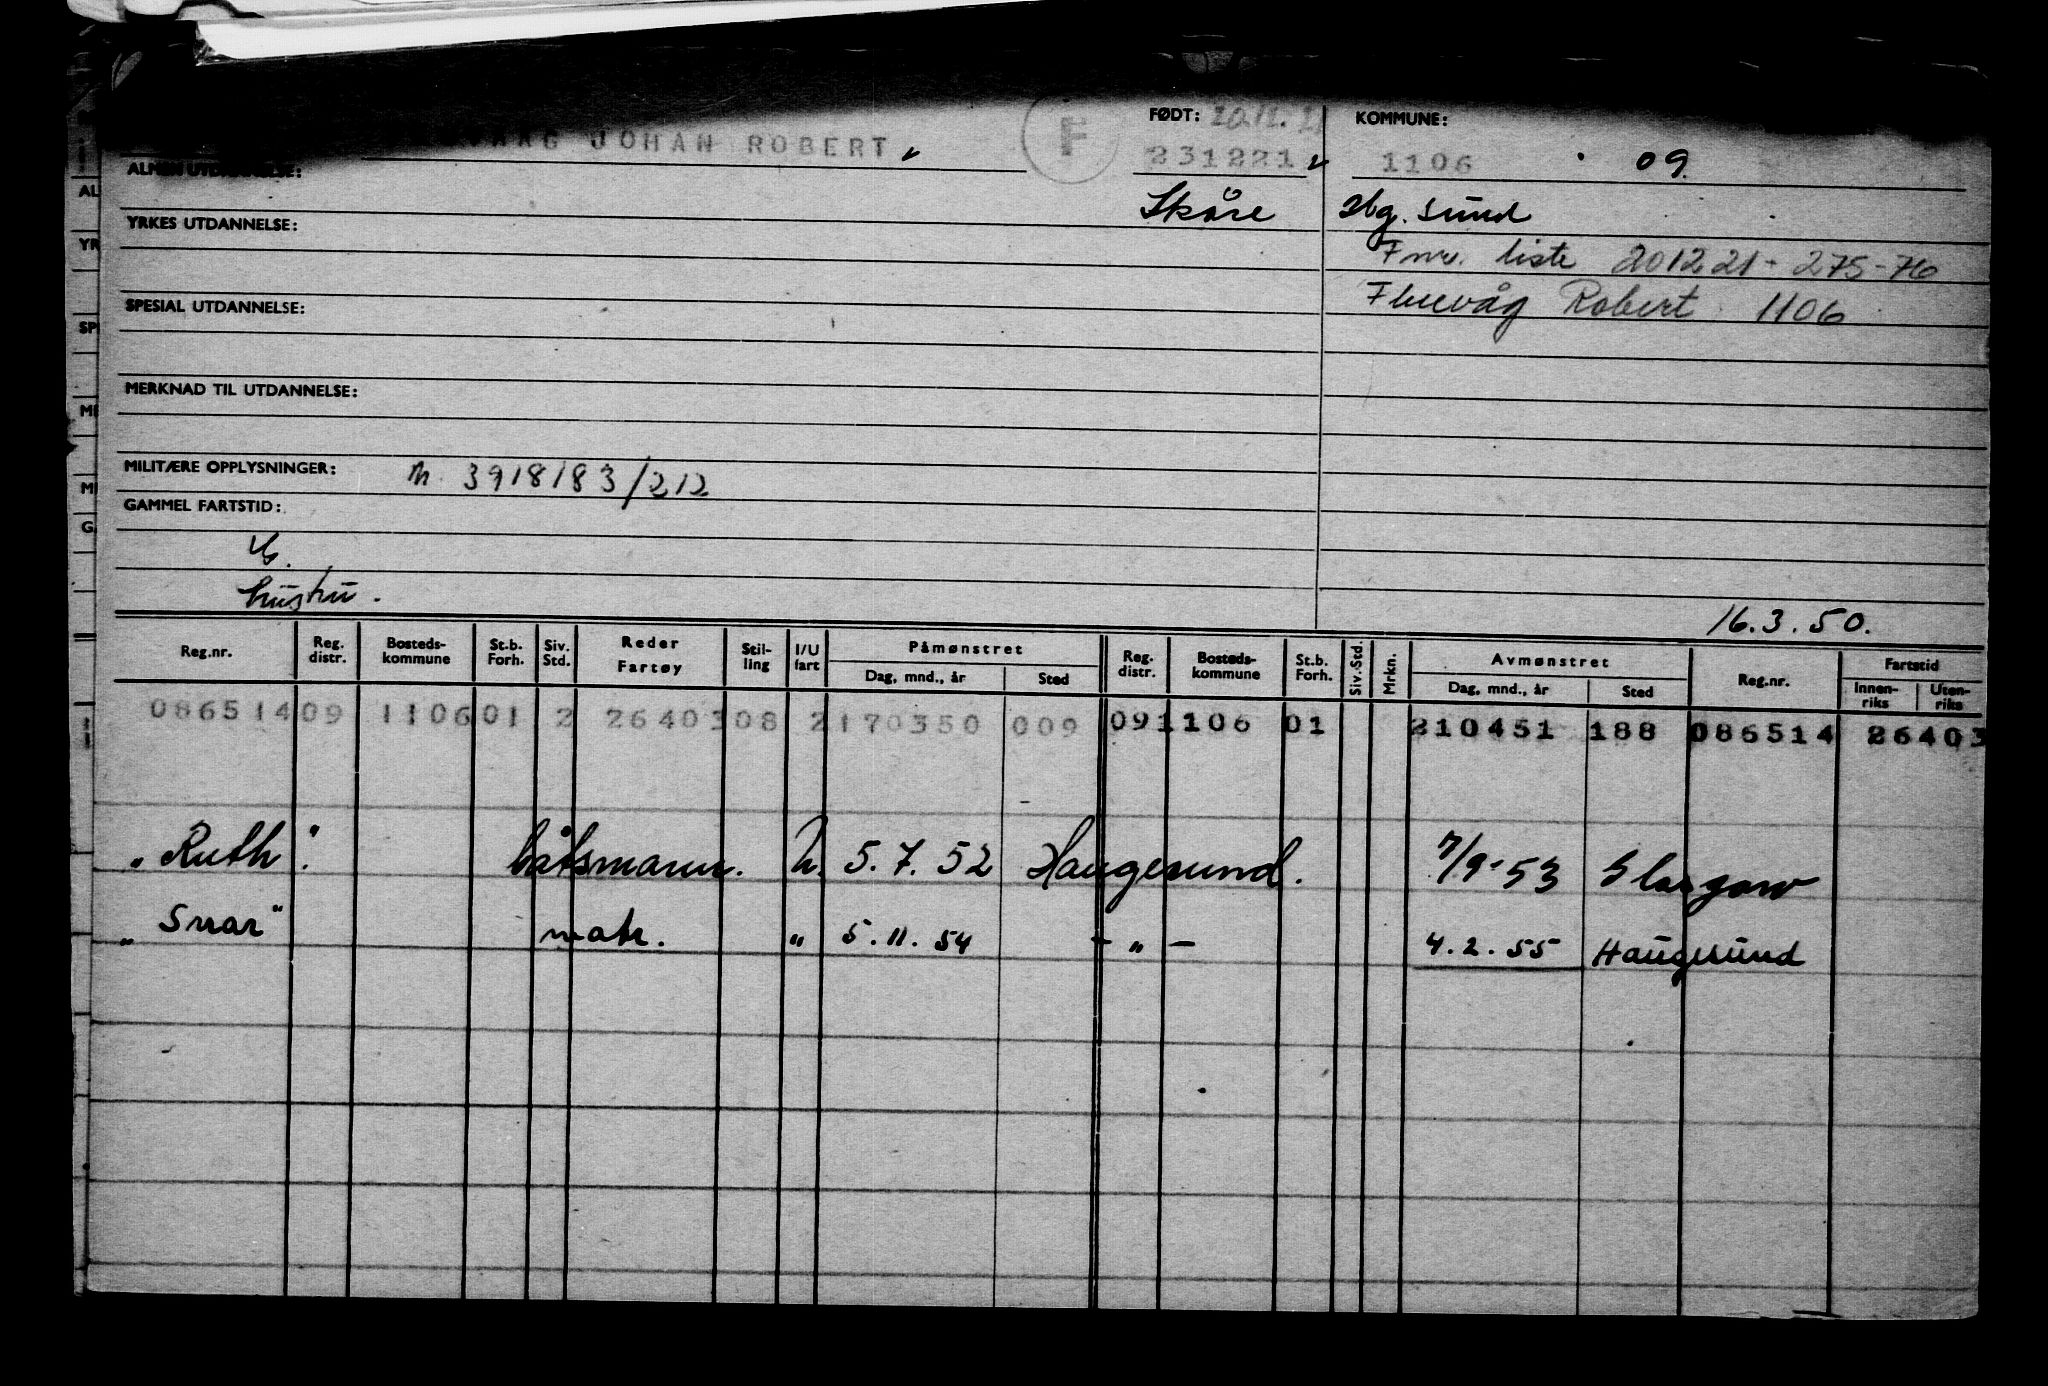 JOHAN ROBERT
F
FØDT: 20.12.21
231221
KOMMUNE:
1106 09.
ALMEN UTDANNELSE:
Skåre
Hg. sund
YRKES UTDANNELSE:
Fnr. liste 201221-275-76
SPESIAL UTDANNELSE:
Robert 1106
MERKNAD TIL UTDANNELSE:
MILITÆRE OPPLYSNINGER: M. 3918183/212
GAMMEL FARTSTID:
hustru.
16.3.50.
Reg.nr. Reg. distr. Bosteds-kommune St.b. Forh. Siv. Std. Reder Fartøy Stil-ling I/U fart Påmønstret Dag, mnd., år Sted Reg. distr. Bosteds-kommune St.b. Forh. Siv.-Std. Mrkn. Avmønstret Dag, mnd., år Sted Reg.nr. Fartstid Innen-riks Uten-riks
086514 09 1106 01 2 26403 08 2 170350 009 09 1106 01 210451 188 086514 26403
"Ruth". båtsmann. U. 5.7.52 Haugesund. 7/9-53 Glasgow
"Snar" matr. " 5.11.54 - " - 4.2.55 Haugesund